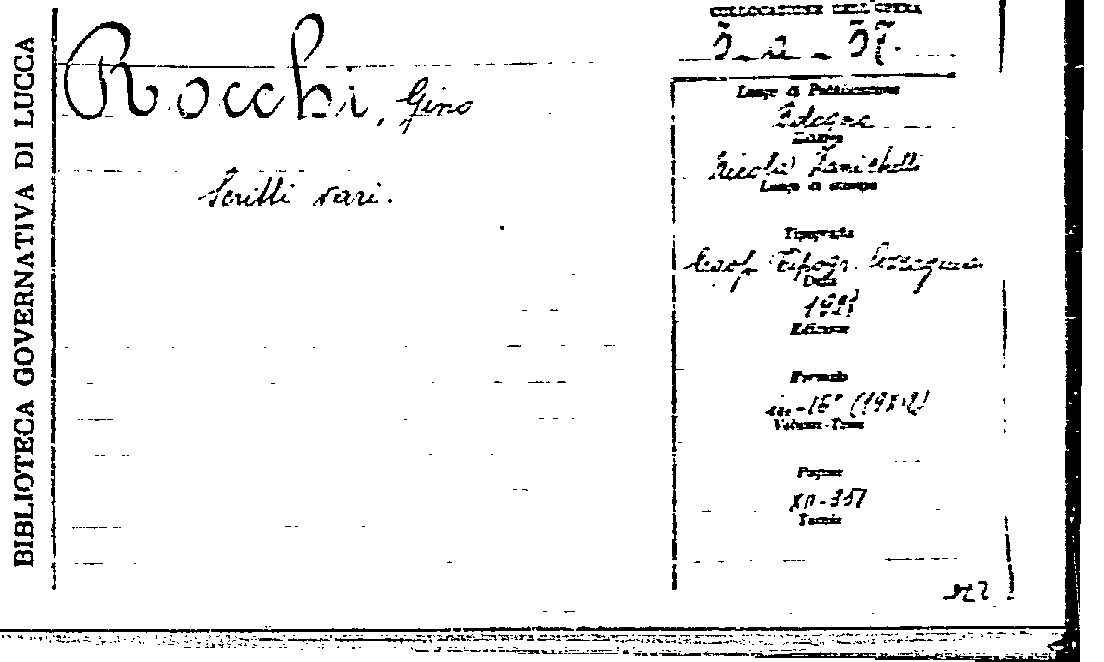 BIBLIOTECA GOVERNATIVA DI LUCCA
Rocchi, Gino
Scritti vari.
COLLOCAZIONE DELL'OPERA
Luogo di Pubblicazione
Bologna
Editore
Nicola Zanichelli
Luogo di stampa
Tipografia
Coop. Tipogr.
Data
Edizione
Formato
in-16° (19x12)
Volume-Tomo
Pagine
XII-357
Tavole